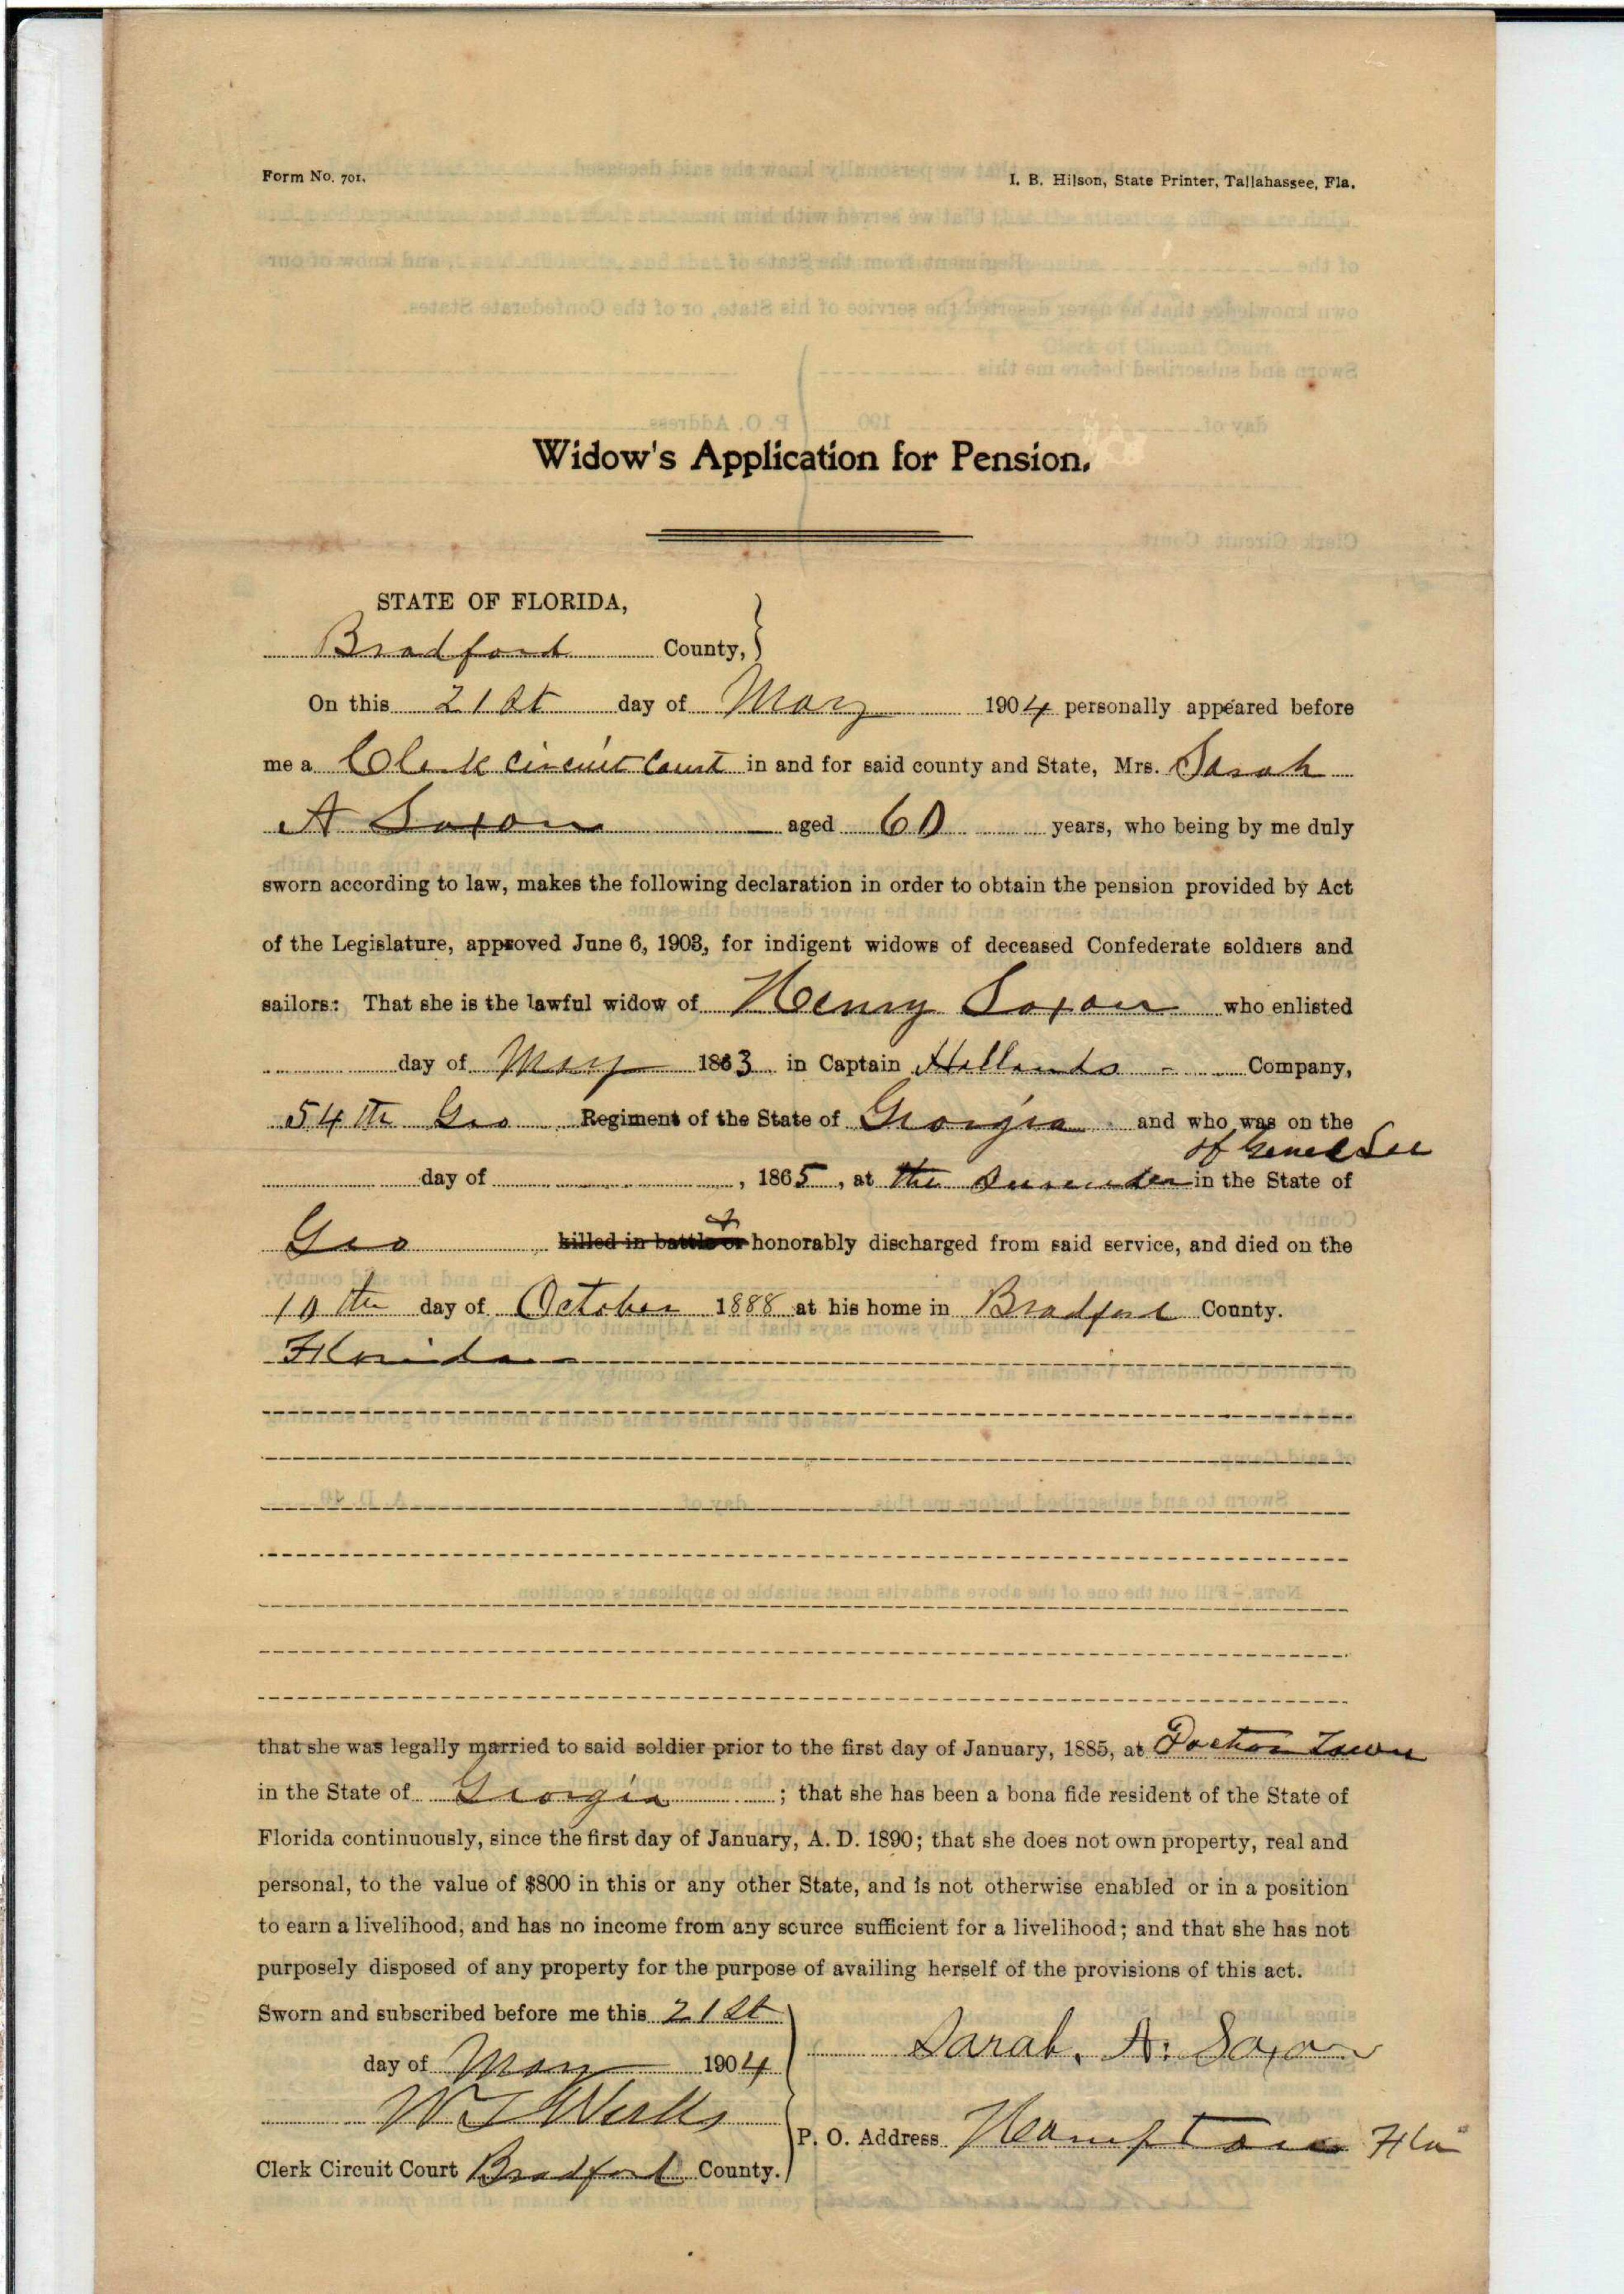 Form No. 701.
I. B. Hilson, State Printer, Tallahassee, Fla.
Widow's Application for Pension.
STATE OF FLORIDA,
Bradford County,
On this 21st day of May 1904 personally appeared before
me a Clerk circuit Court in and for said county and State, Mrs. Sarah
A Saxon aged 60 years, who being by me duly
sworn according to law, makes the following declaration in order to obtain the pension provided by Act
of the Legislature, approved June 6, 1903, for indigent widows of deceased Confederate soldiers and
sailors: That she is the lawful widow of Henry Saxon who enlisted
day of May 1863 in Captain Hollands Company,
54th Geo Regiment of the State of Georgia and who was on the
of Genel Lee
day of , 1865, at the Surrender in the State of
Geo killed in battle or honorably discharged from said service, and died on the
10th day of October 1888 at his home in Bradford County.
Florida
that she was legally married to said soldier prior to the first day of January, 1885, at Doctor Town
in the State of Georgia ; that she has been a bona fide resident of the State of
Florida continuously, since the first day of January, A. D. 1890; that she does not own property, real and
personal, to the value of $800 in this or any other State, and is not otherwise enabled or in a position
to earn a livelihood, and has no income from any source sufficient for a livelihood; and that she has not
purposely disposed of any property for the purpose of availing herself of the provisions of this act.
Sworn and subscribed before me this 21st
day of May 1904
Sarah. A. Saxon
W T Weeks
P. O. Address Hampton Fla
Clerk Circuit Court Bradford County.